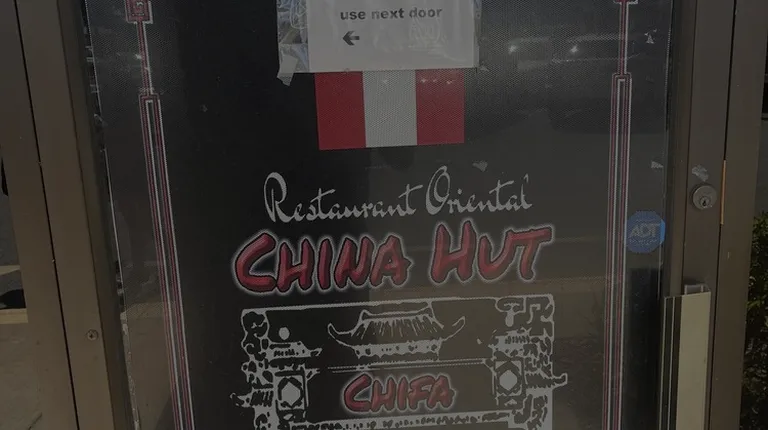 use next door
Restaurant Oriental
CHINA HUT
ADT
CHIFA